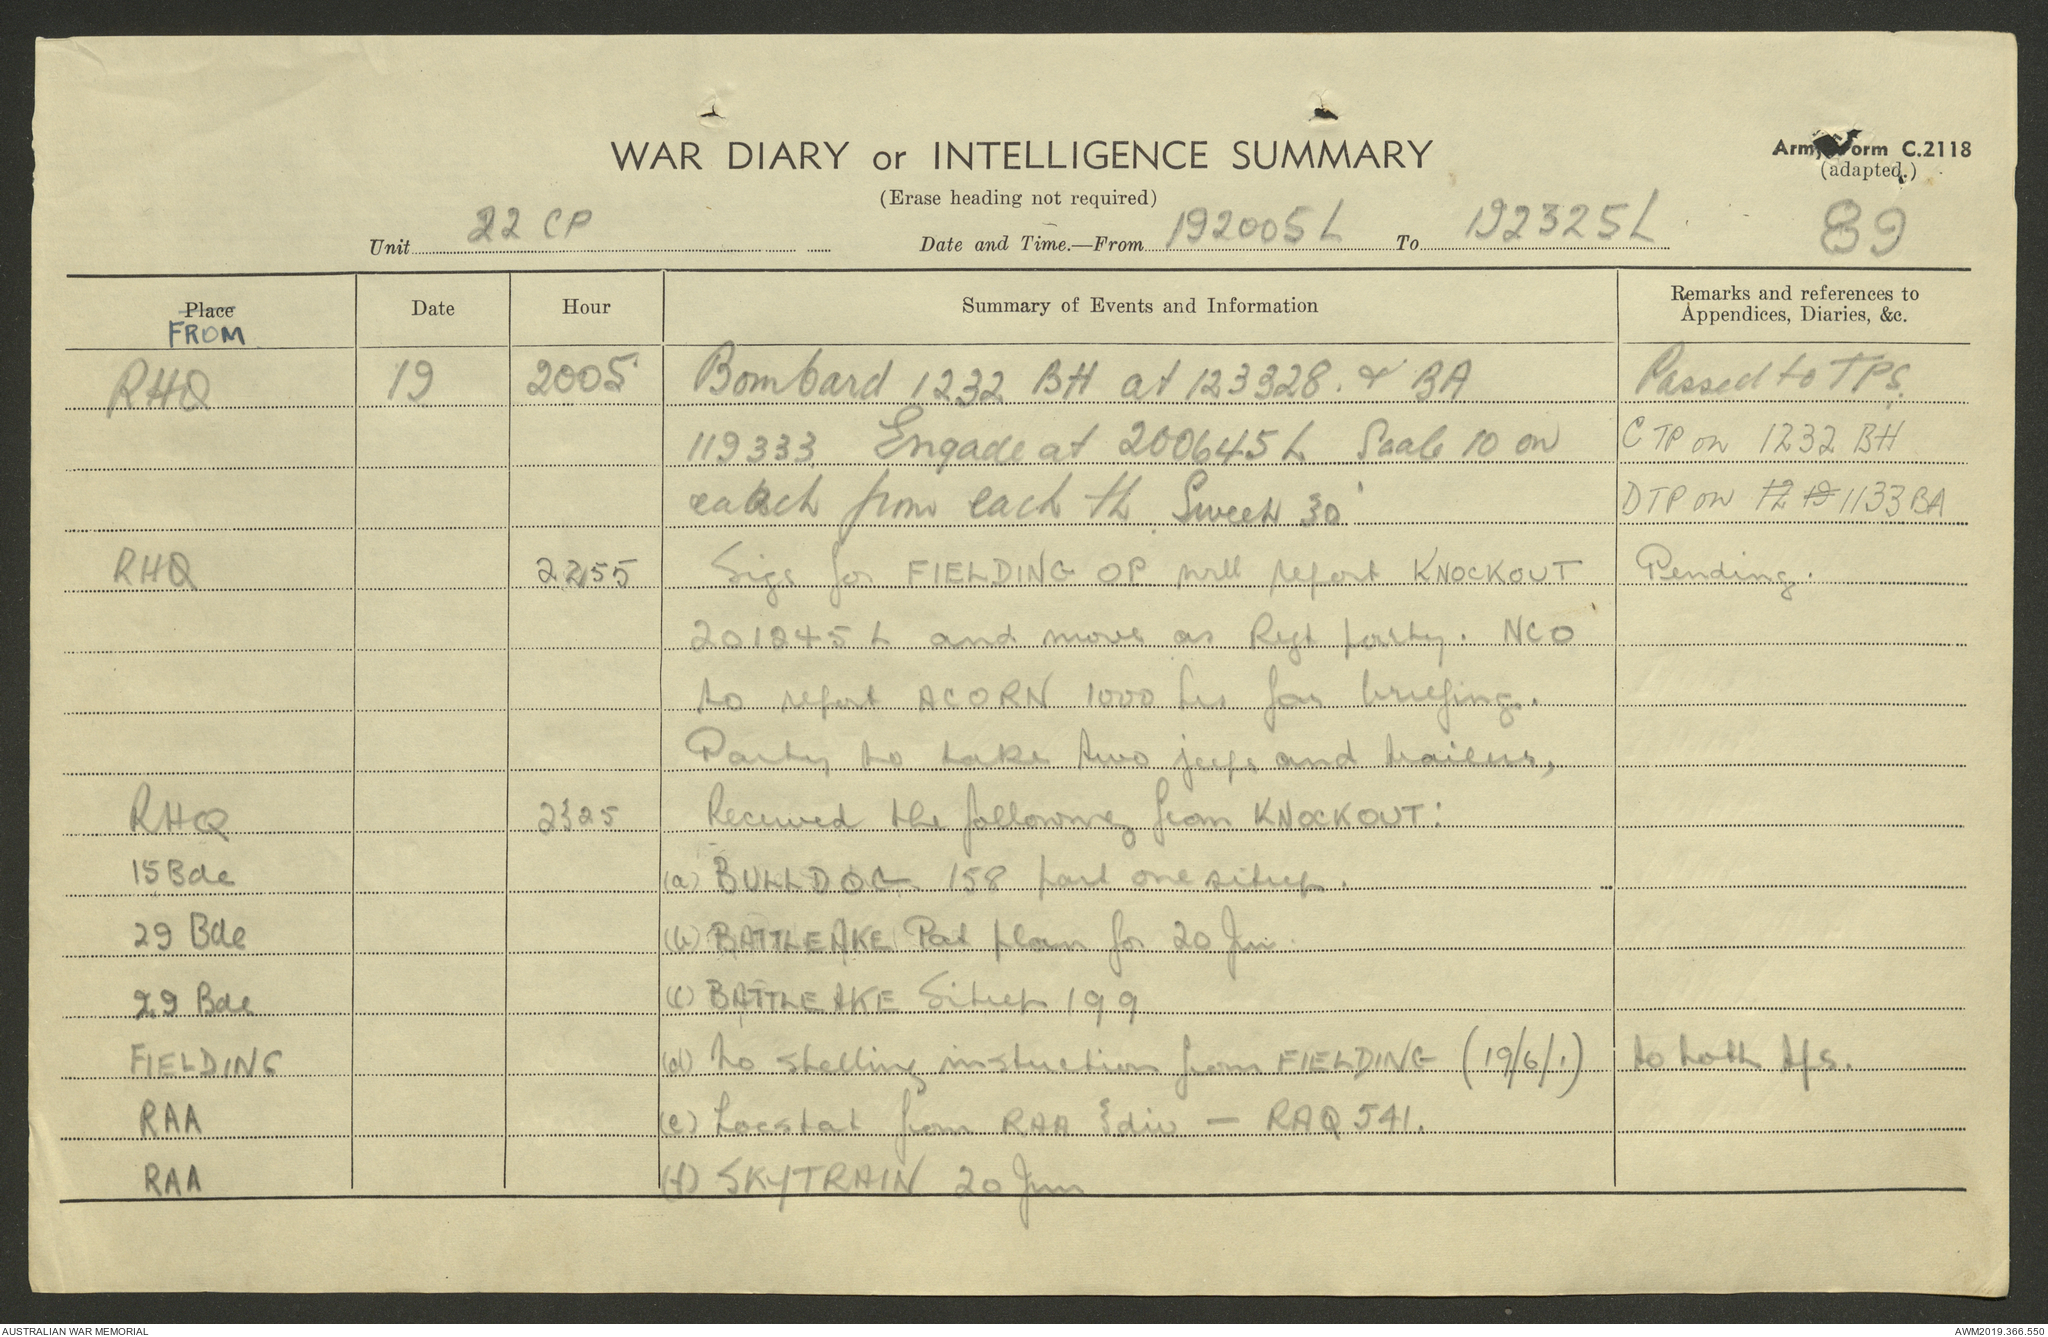 WAR DIARY or INTELLIGENCE SUMMARY
Army Form C.2118
(adapted.)
(Erase heading not required)
89
Unit 22 CP Date and Time.—From 192005L To 192325L
Place Date Hour Summary of Events and Information Remarks and references to Appendices, Diaries, &c.
FROM
RHQ 19 2005 Bombard 1232 BH at 123328. & BA Passed to TPS.
119333 Engade at 200645L Scale 10 on C TP on 1232 BH
each from each Sweep 30 D TP on 12 19 1133 BA
RHQ 2255 Sigs for FIELDING OP will report KNOCKOUT Pending.
201245L and move as Regt party. NCO
to report ACORN 1000 hrs for briefing.
Party to take two jeeps and trailers,
RHQ 2325 Received the following from KNOCKOUT:
15 Bde (a) BULLDOG 158 part one sitrep.
29 Bde (b) BATTLEAKE Pat plan for 20 Jun.
29 Bde (c) BATTLEAKE Sitrep 199
FIELDING (d) No shelling instruction from FIELDING (19/6/1) to both tps.
RAA (e) Locstat from RAA 3 div — RAQ 541.
RAA (f) SKYTRAIN 20 Jun
AUSTRALIAN WAR MEMORIAL
AWM2019.366.550